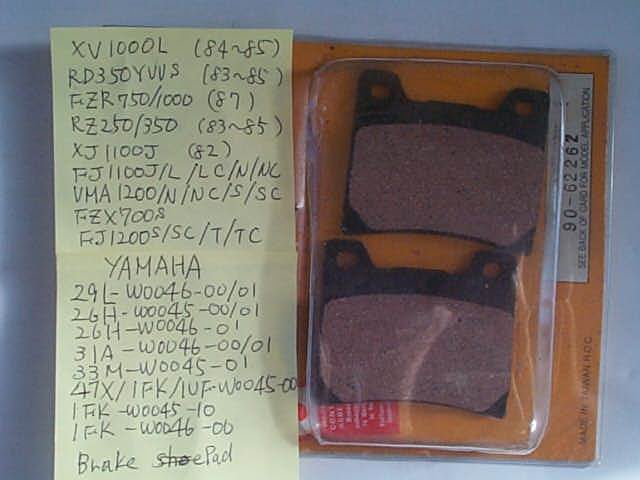 XV1000L (84~85)
RD350YVVS (83~85)
FZR750/1000 (87)
RZ250/350 (83~85)
XJ1100J (82)
FJ1100J/L/LC/N/NC
VMA1200/N/NC/S/SC
FZX700S
FJ1200S/SC/T/TC
YAMAHA
29L-W0046-00/01
26H-W0045-00/01
26H-W0046-01
31A-W0046-00/01
33M-W0045-01
47X/1FK/1UF-W0045-00
1FK-W0045-10
1FK-W0046-00
Brake shoe Pad
90-62262
SEE BACK OF CARD FOR MODEL APPLICATION
MADE IN TAIWAN R.O.C.